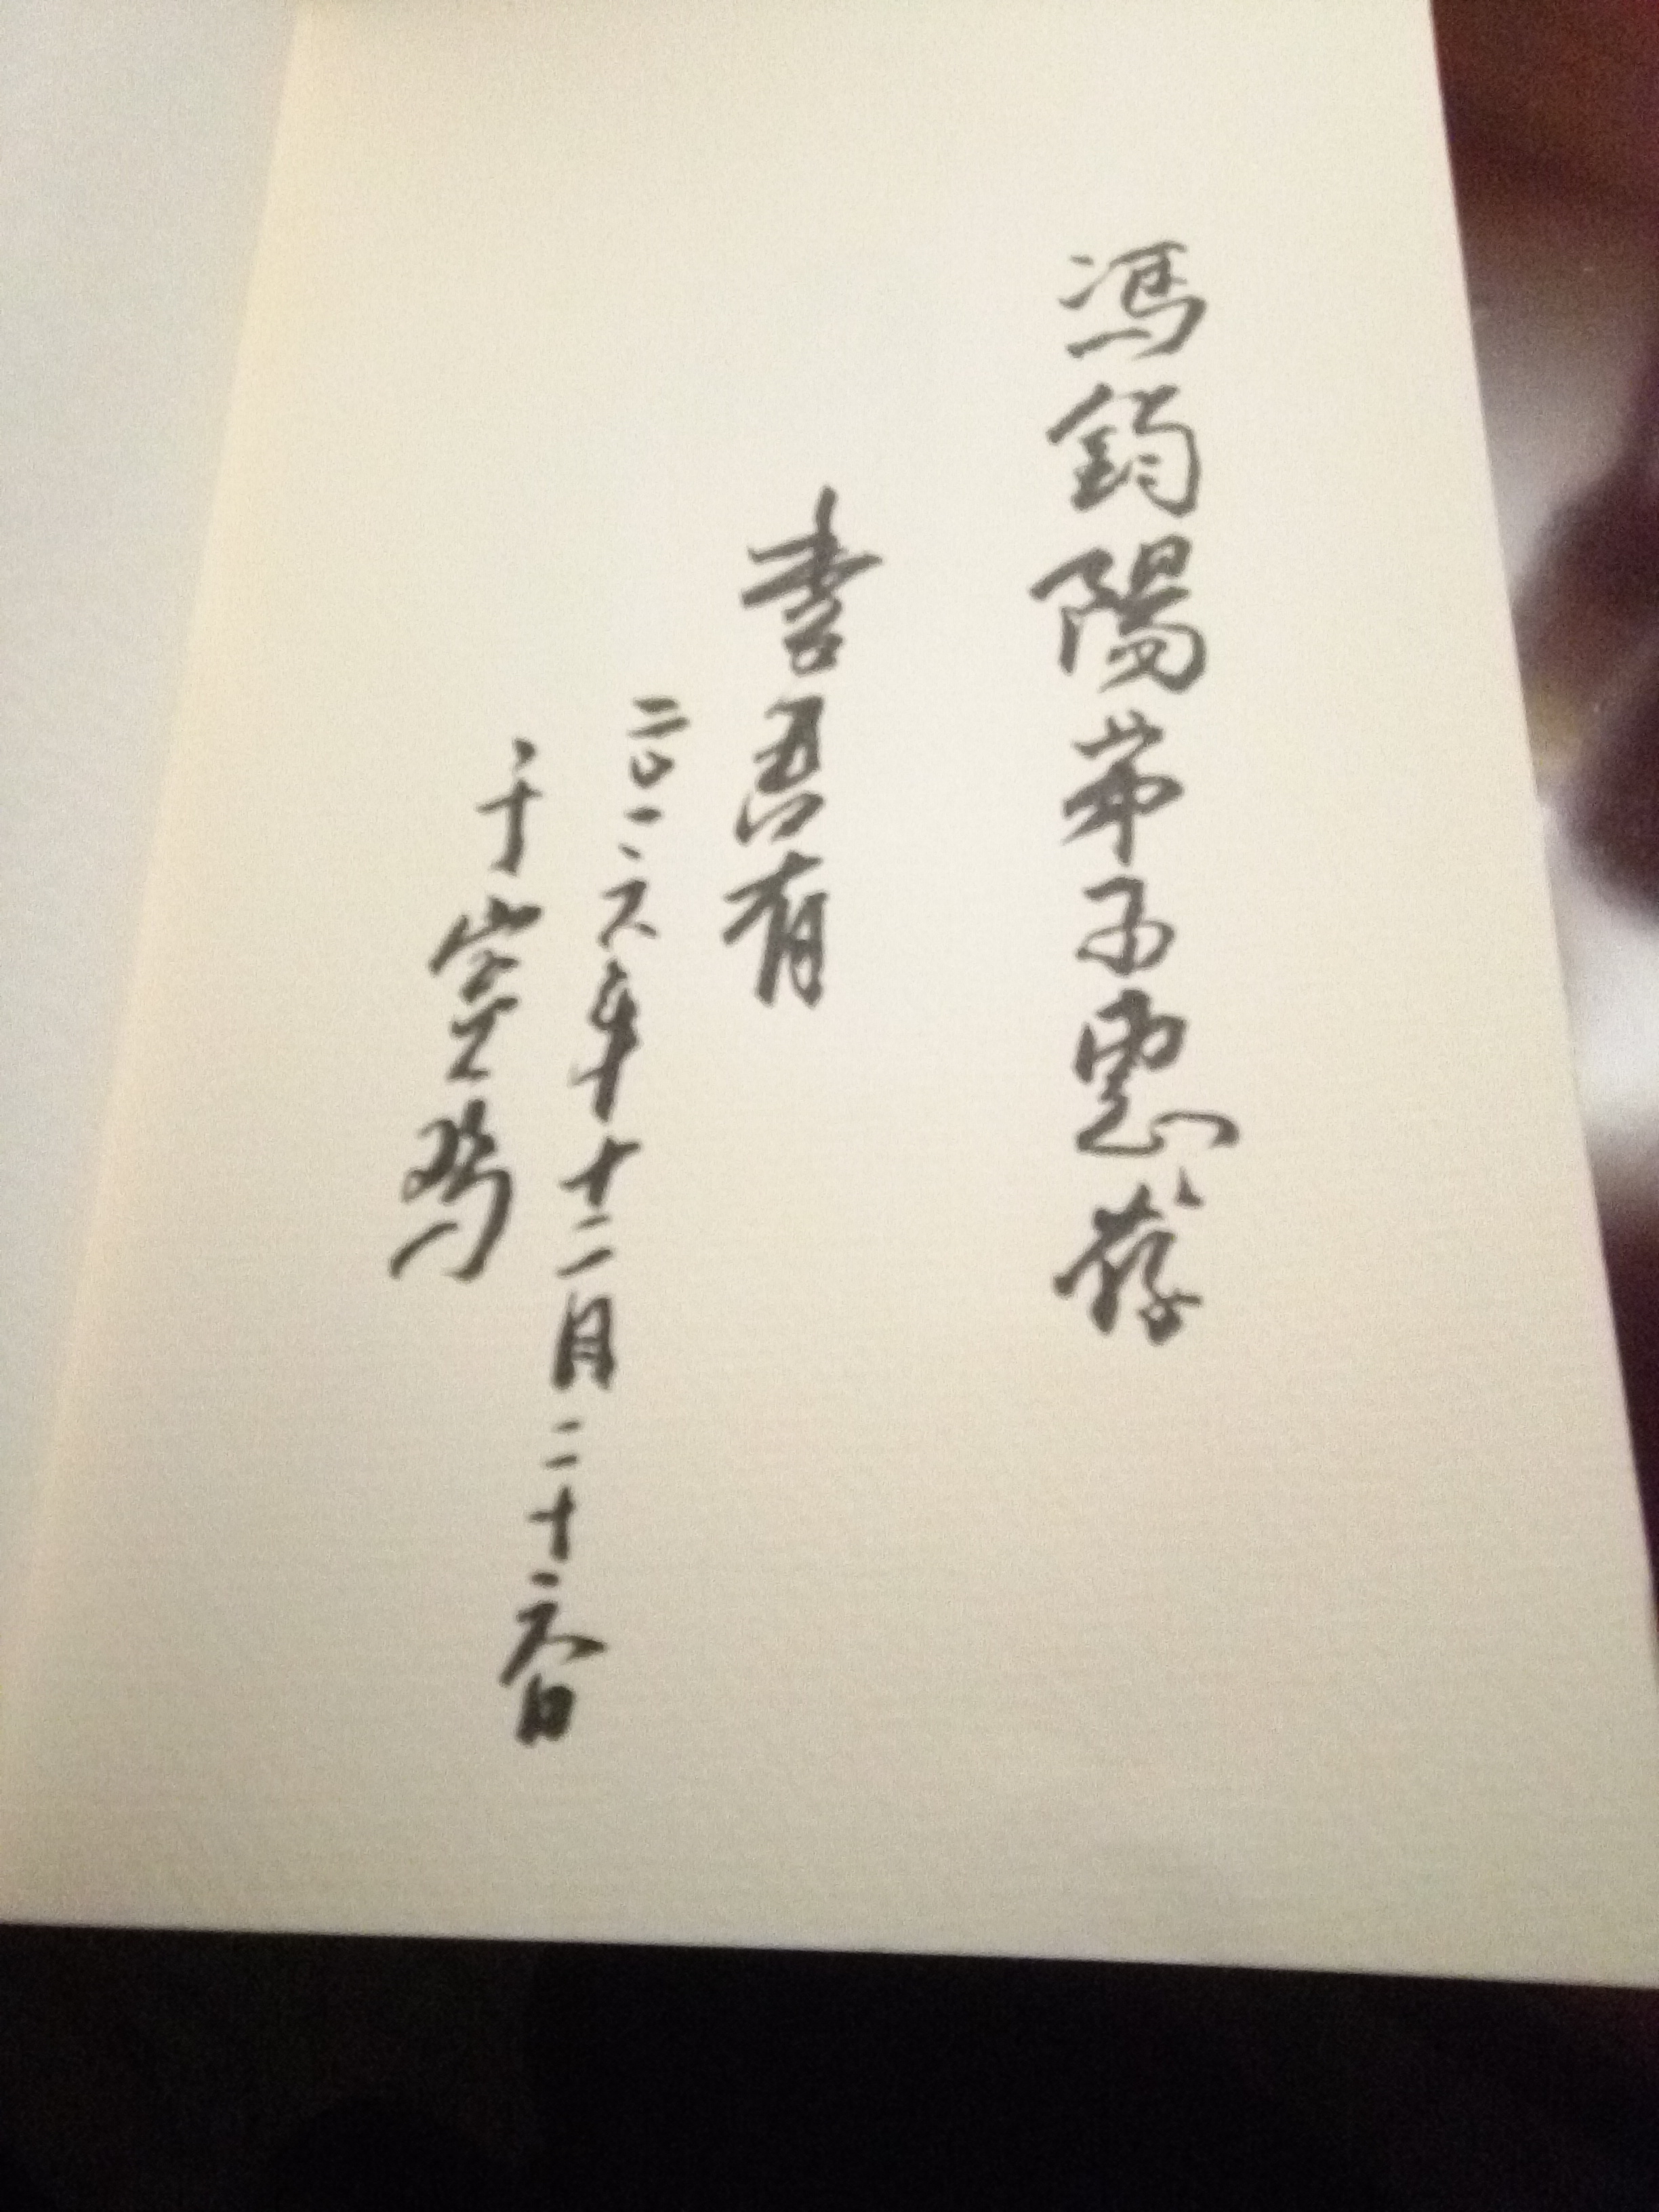 馮鈞陽弟子惠存
李吾有
二〇一六年十二月二十六日
于寶鸡